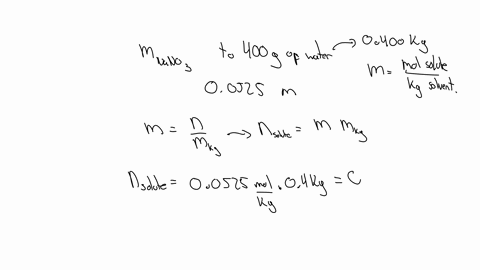 m NaNO₃ to 400 g of water → 0.400 kg
0.0525 m
m = mol solute / kg solvent.
m = n / m kg → n solute = m m kg
n solute = 0.0525 mol / kg . 0.4 kg = C